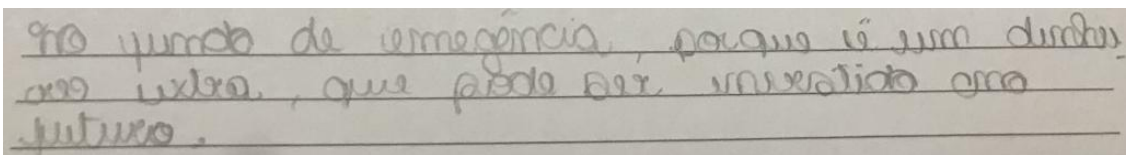 no fundo de emegência, porque é um dinhei
ro extra, que pode ser investido no
futuro.